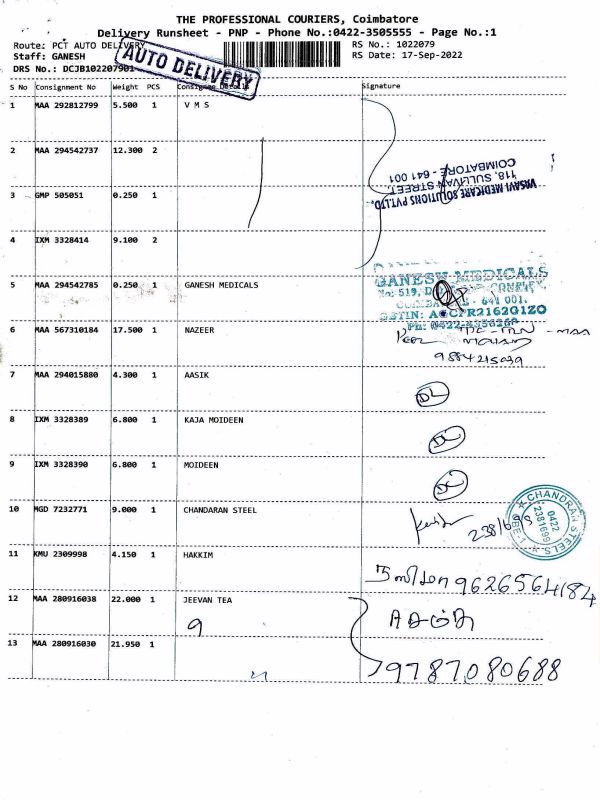 THE PROFESSIONAL COURIERS, Coimbatore
Delivery Runsheet - PNP - Phone No.:0422-3505555 - Page No.:1
Route: PCT AUTO DELIVERY RS No.: 1022079
Staff: GANESH RS Date: 17-Sep-2022
DRS No.: DCJB102207901
AUTO DELIVERY
S No Consignment No Weight PCS Consignee Details Signature
1 MAA 292812799 5.500 1 V M S
2 MAA 294542737 12.300 2
3 GMP 505051 0.250 1
VASAVI MEDICARE SOLUTIONS PVT.LTD.
118, SULLIVAN STREET,
COIMBATORE - 641 001
4 IXM 3328414 9.100 2
5 MAA 294542785 0.250 1 GANESH MEDICALS
GANESH MEDICALS
No: 519,
COIMBATORE - 641 001.
GSTIN: A CPR2162G1ZO
Ph: 0422-4356268
6 MAA 567310184 17.500 1 NAZEER
- MAA
9884215039
7 MAA 294015880 4.300 1 AASIK
8 IXM 3328389 6.800 1 KAJA MOIDEEN
9 IXM 3328390 6.800 1 MOIDEEN
10 MGD 7232771 9.000 1 CHANDARAN STEEL
2381695
CHANDRAN STEELS
0422
2381699
CBE-1
11 KMU 2309998 4.150 1 HAKKIM
9626564184
12 MAA 280916038 22.000 1 JEEVAN TEA
9
13 MAA 280916030 21.950 1
9787080688